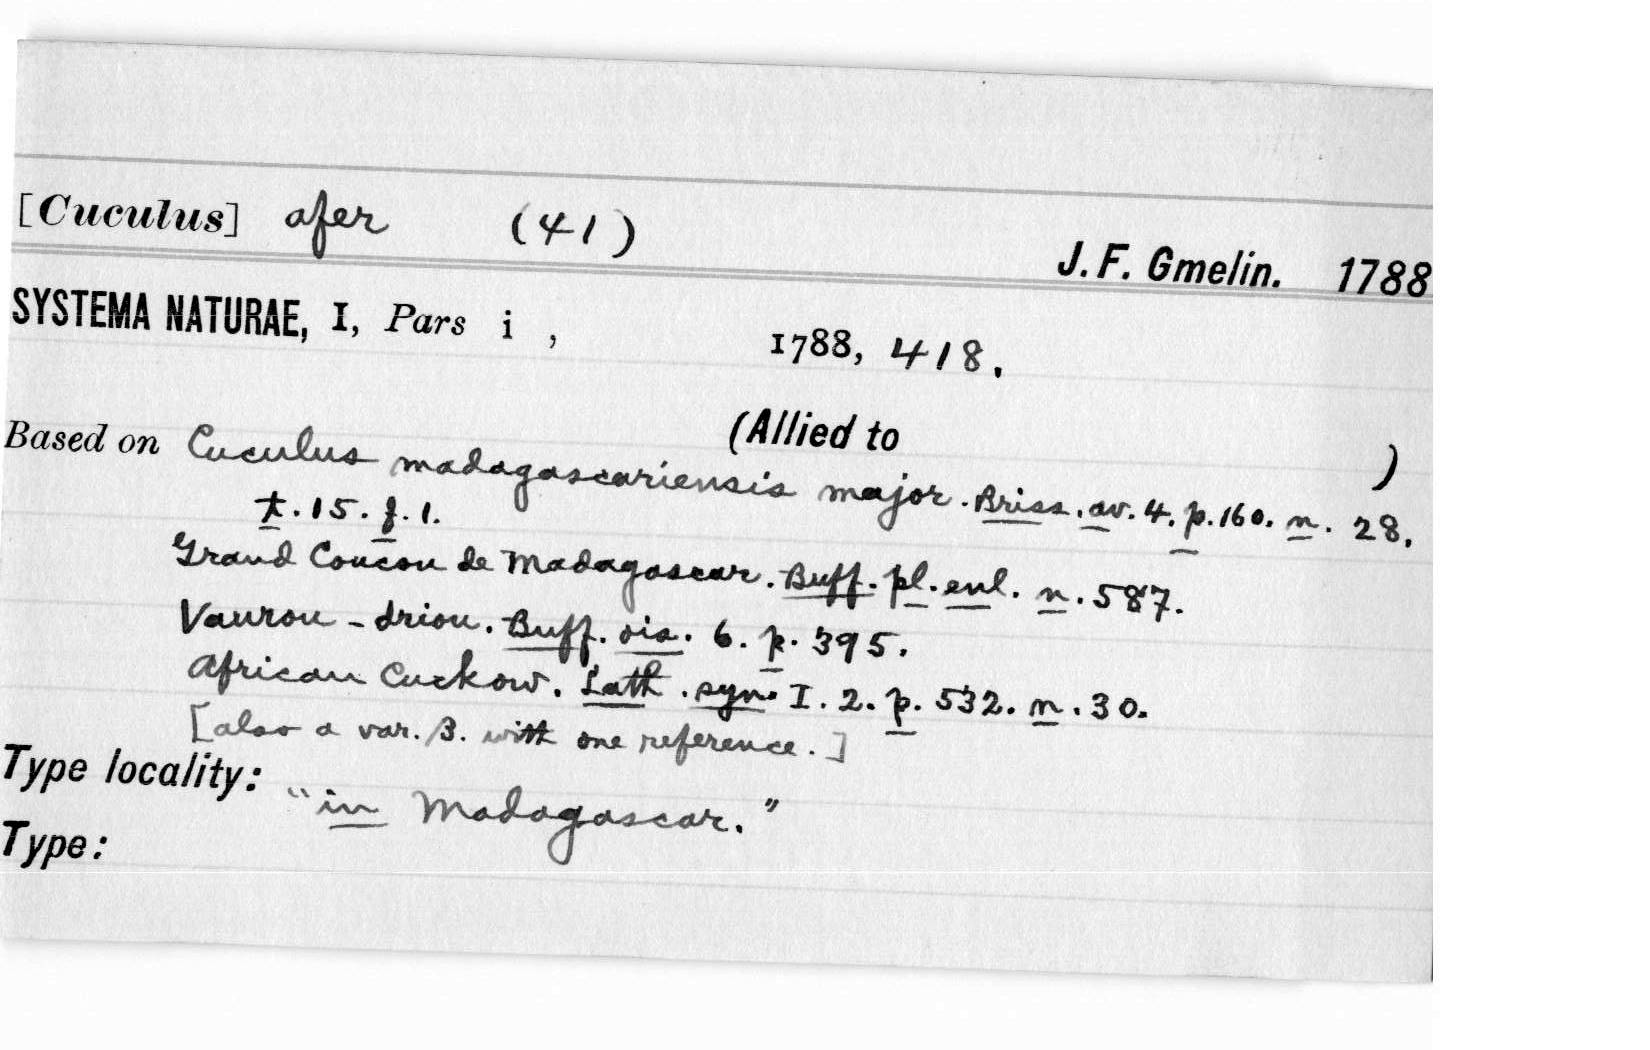 [Cuculus] afer (41)
J. F. Gmelin. 1788
SYSTEMA NATURAE, I, Pars i , 1788, 418.
(Allied to )
Based on Cuculus madagascariensis major. Briss. av. 4. p. 160. n. 28.
t. 15. f. 1.
Grand Coucou de Madagascar. Buff. pl. enl. n. 587.
Vourou-driou. Buff. ois. 6. p. 395.
African Cuckow. Lath. syn. I. 2. p. 532. n. 30.
[also a var. β. with one reference.]
Type locality: "in Madagascar."
Type: